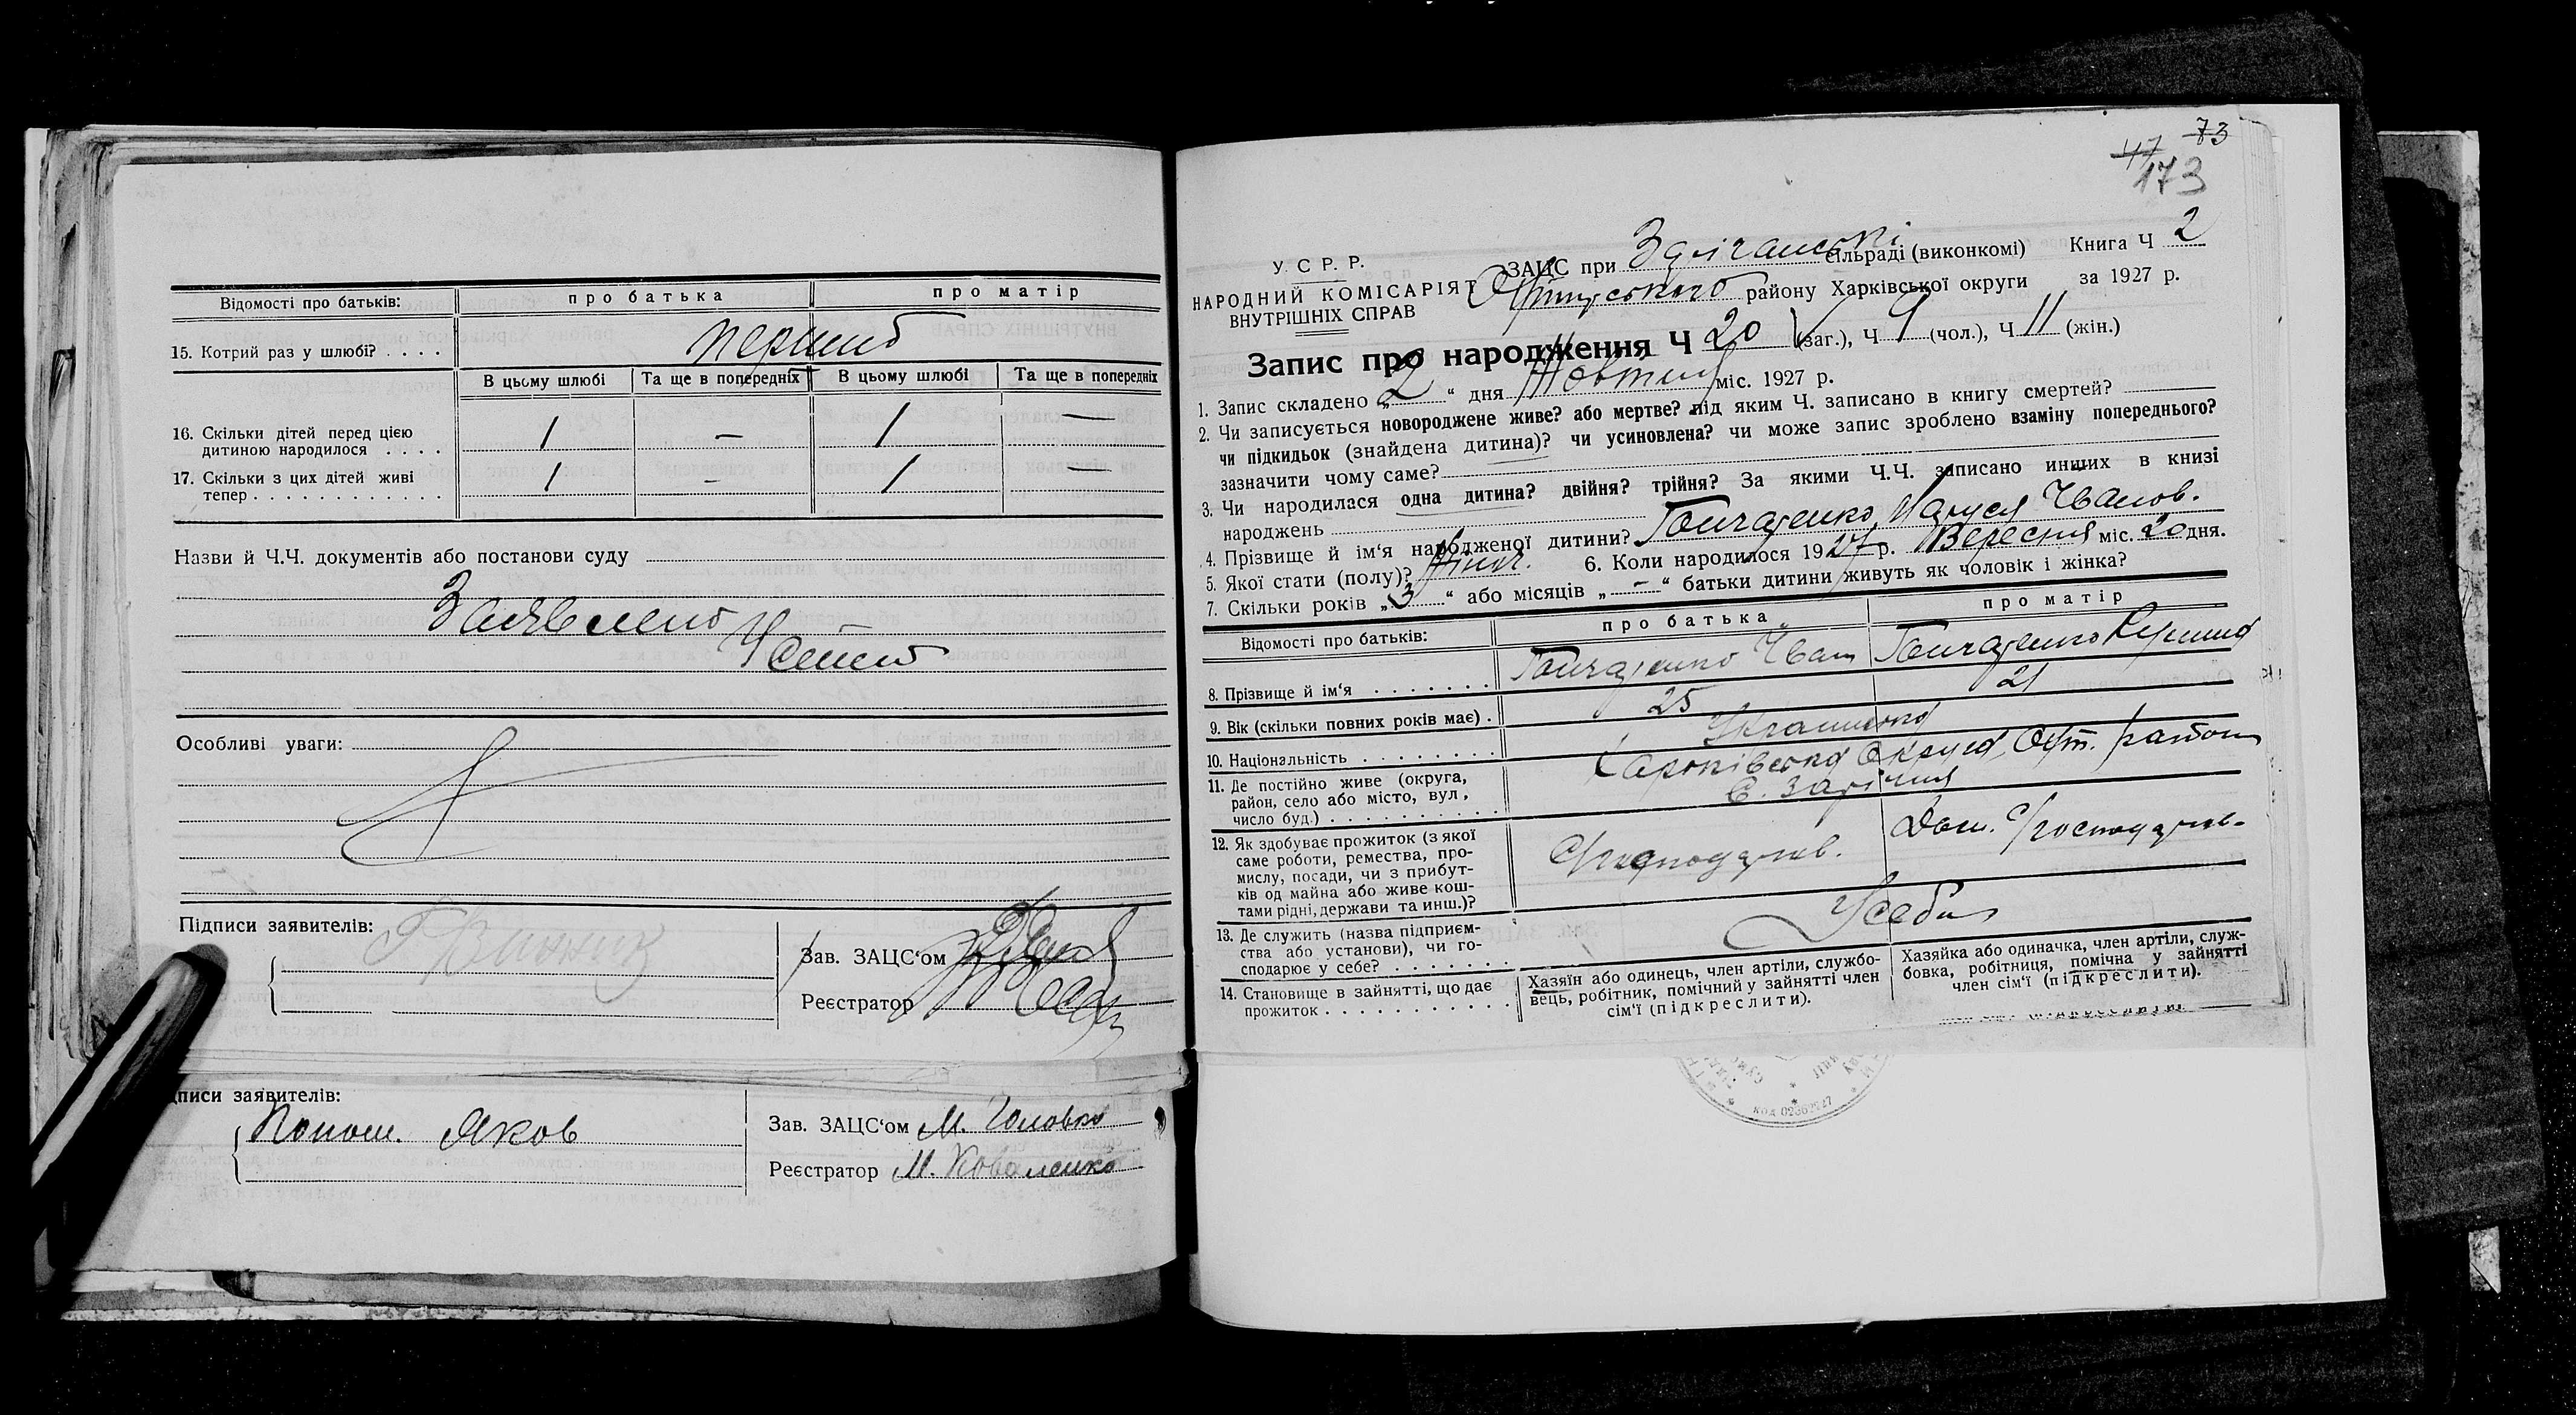 Відомості про батьків: про батька про матір
15. Котрий раз у шлюбі? . . . . перший
В цьому шлюбі Та ще в попередніх В цьому шлюбі Та ще в попередніх
16. Скільки дітей перед цією
дитиною народилося . . . . 1 — 1 —
17. Скільки з цих дітей живі
тепер . . . . . . . . . . . . . 1 - 1 —
Назви й Ч.Ч. документів або постанови суду
Заявлено
Усно
Особливі уваги:
Підписи заявителів:
Зав. ЗАЦС‘ом
Реєстратор
писи заявителів:
Яков
Зав. ЗАЦС‘ом М. Головко
Реєстратор М. Коваленко
73
47
173
У. С. Р. Р.
НАРОДНИЙ КОМІСАРІЯТ
ВНУТРІШНІХ СПРАВ
ЗАЦС при сільраді (виконкомі) Книга Ч 2
району Харківської округи за 1927 р.
Запис про народження Ч 20 (заг.), Ч 9 (чол.), Ч 11 (жін.)
1. Запис складено „2“ дня Жовтня міс. 1927 р.
2. Чи записується новороджене живе? або мертве? під яким Ч. записано в книгу смертей?
чи підкидьок (знайдена дитина)? чи усиновлена? чи може запис зроблено взаміну попереднього?
зазначити чому саме?
3. Чи народилася одна дитина? двійня? трійня? За якими Ч.Ч. записано инших в книзі
народжень —
4. Прізвище й ім‘я народженої дитини? Гончаренко Маруся Іванов.
5. Якої стати (полу)? Жіноч. 6. Коли народилося 1927 р. Вересня міс. 20 дня.
7. Скільки років „3“ або місяців „—“ батьки дитини живуть як чоловік і жінка?
Відомості про батьків: про батька про матір
8. Прізвище й ім‘я . . . . . . . Гончаренко Іван Гончаренко
9. Вік (скільки повних років має) . 25 21
10. Національність . . . . . . . . Українська
11. Де постійно живе (округа,
район, село або місто, вул,
число буд.) . . . . . . . . . . Харківська Округа, Охт. район
с. Зарічня
12. Як здобуває прожиток (з якої
саме роботи, ремества, про-
мислу, посади, чи з прибут-
ків од майна або живе кош-
тами рідні, держави та инш.)? Господарюв. Дом. Господарюв.
13. Де служить (назва підприєм-
ства або установи), чи го-
сподарює у себе? . . . . . . . У себе
14. Становище в зайнятті, що дає
прожиток . . . . . . . . . . .
Хазяїн або одинець, член артіли, службо-
вець, робітник, помічний у зайнятті член
сім‘ї (підкреслити).
Хазяйка або одиначка, член артіли, служ-
бовка, робітниця, помічна у зайнятті
член сім‘ї (підкреслити).